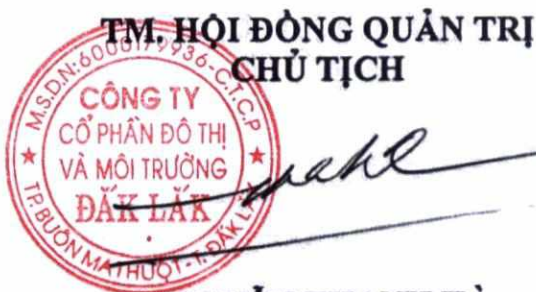 TM. HỘI ĐỒNG QUẢN TRỊ
CHỦ TỊCH
M.S.D.N:6000179936-C.T.C.P
CÔNG TY
CỔ PHẦN ĐÔ THỊ
VÀ MÔI TRƯỜNG
ĐẮK LẮK
TP.BUÔN MA THUỘT-T.ĐẮK LẮK